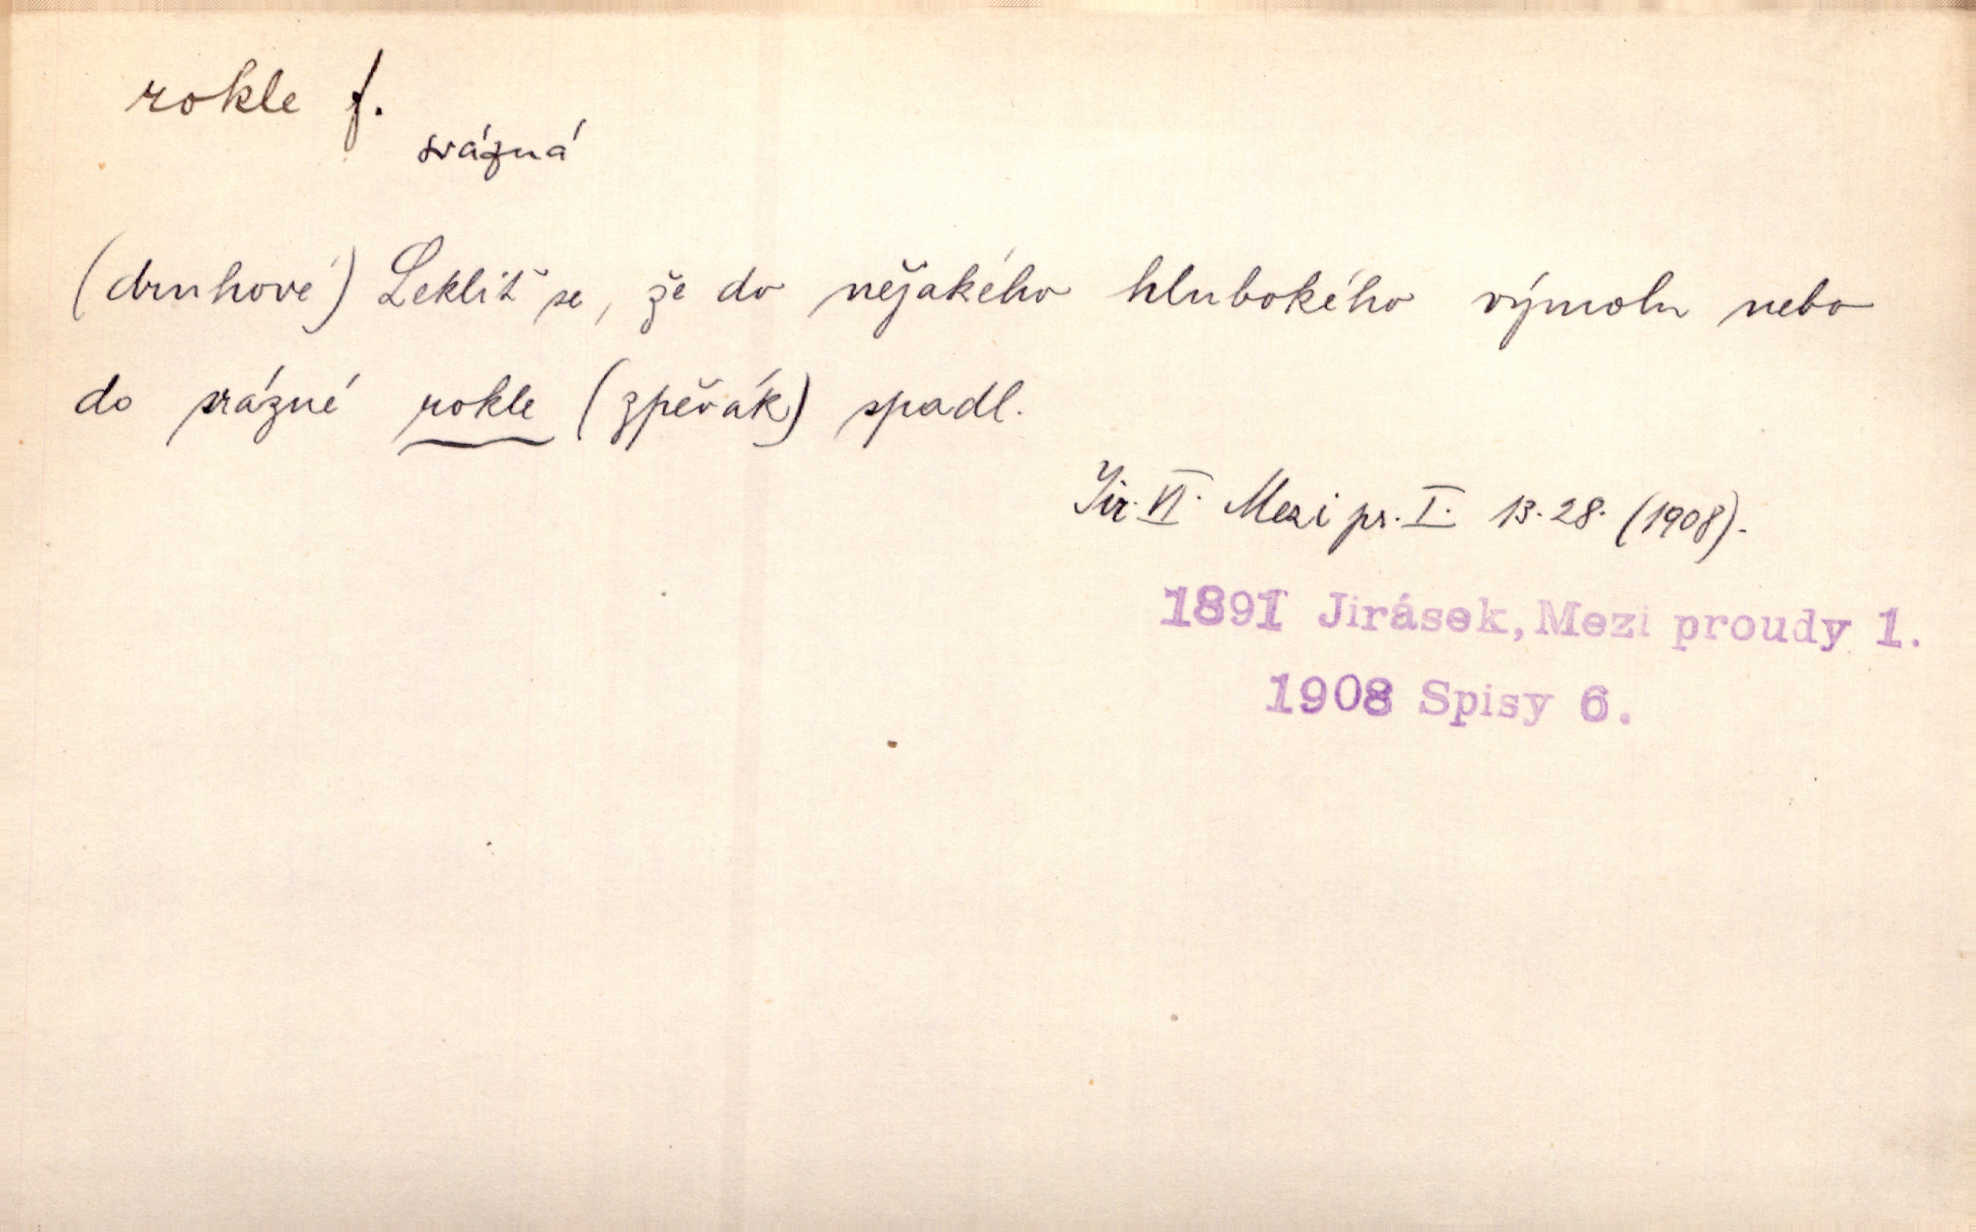 rokle f.
srázná
(druhové) Lekliť se, že do nějakého hlubokého výmolu nebo
do srázné rokle (zpěvák) spadl.
Jir. VI. Mezi pr. I. 13. 28. (1908).
1891 Jirásek, Mezi proudy 1.
1908 Spisy 6.